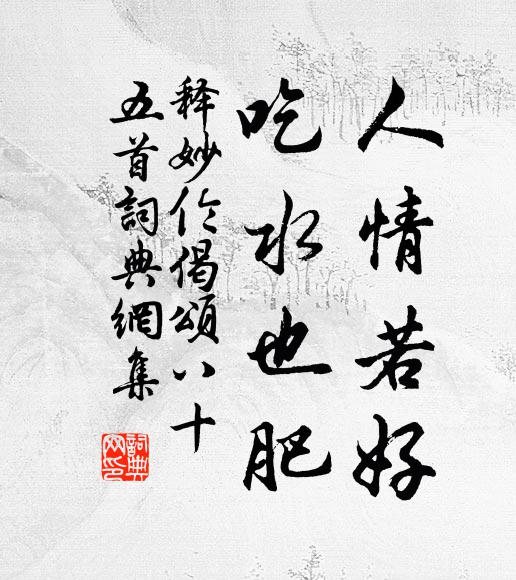 人情若好
吃水也肥
释妙伦偈颂八十
五首詞典網集
詞典
网印